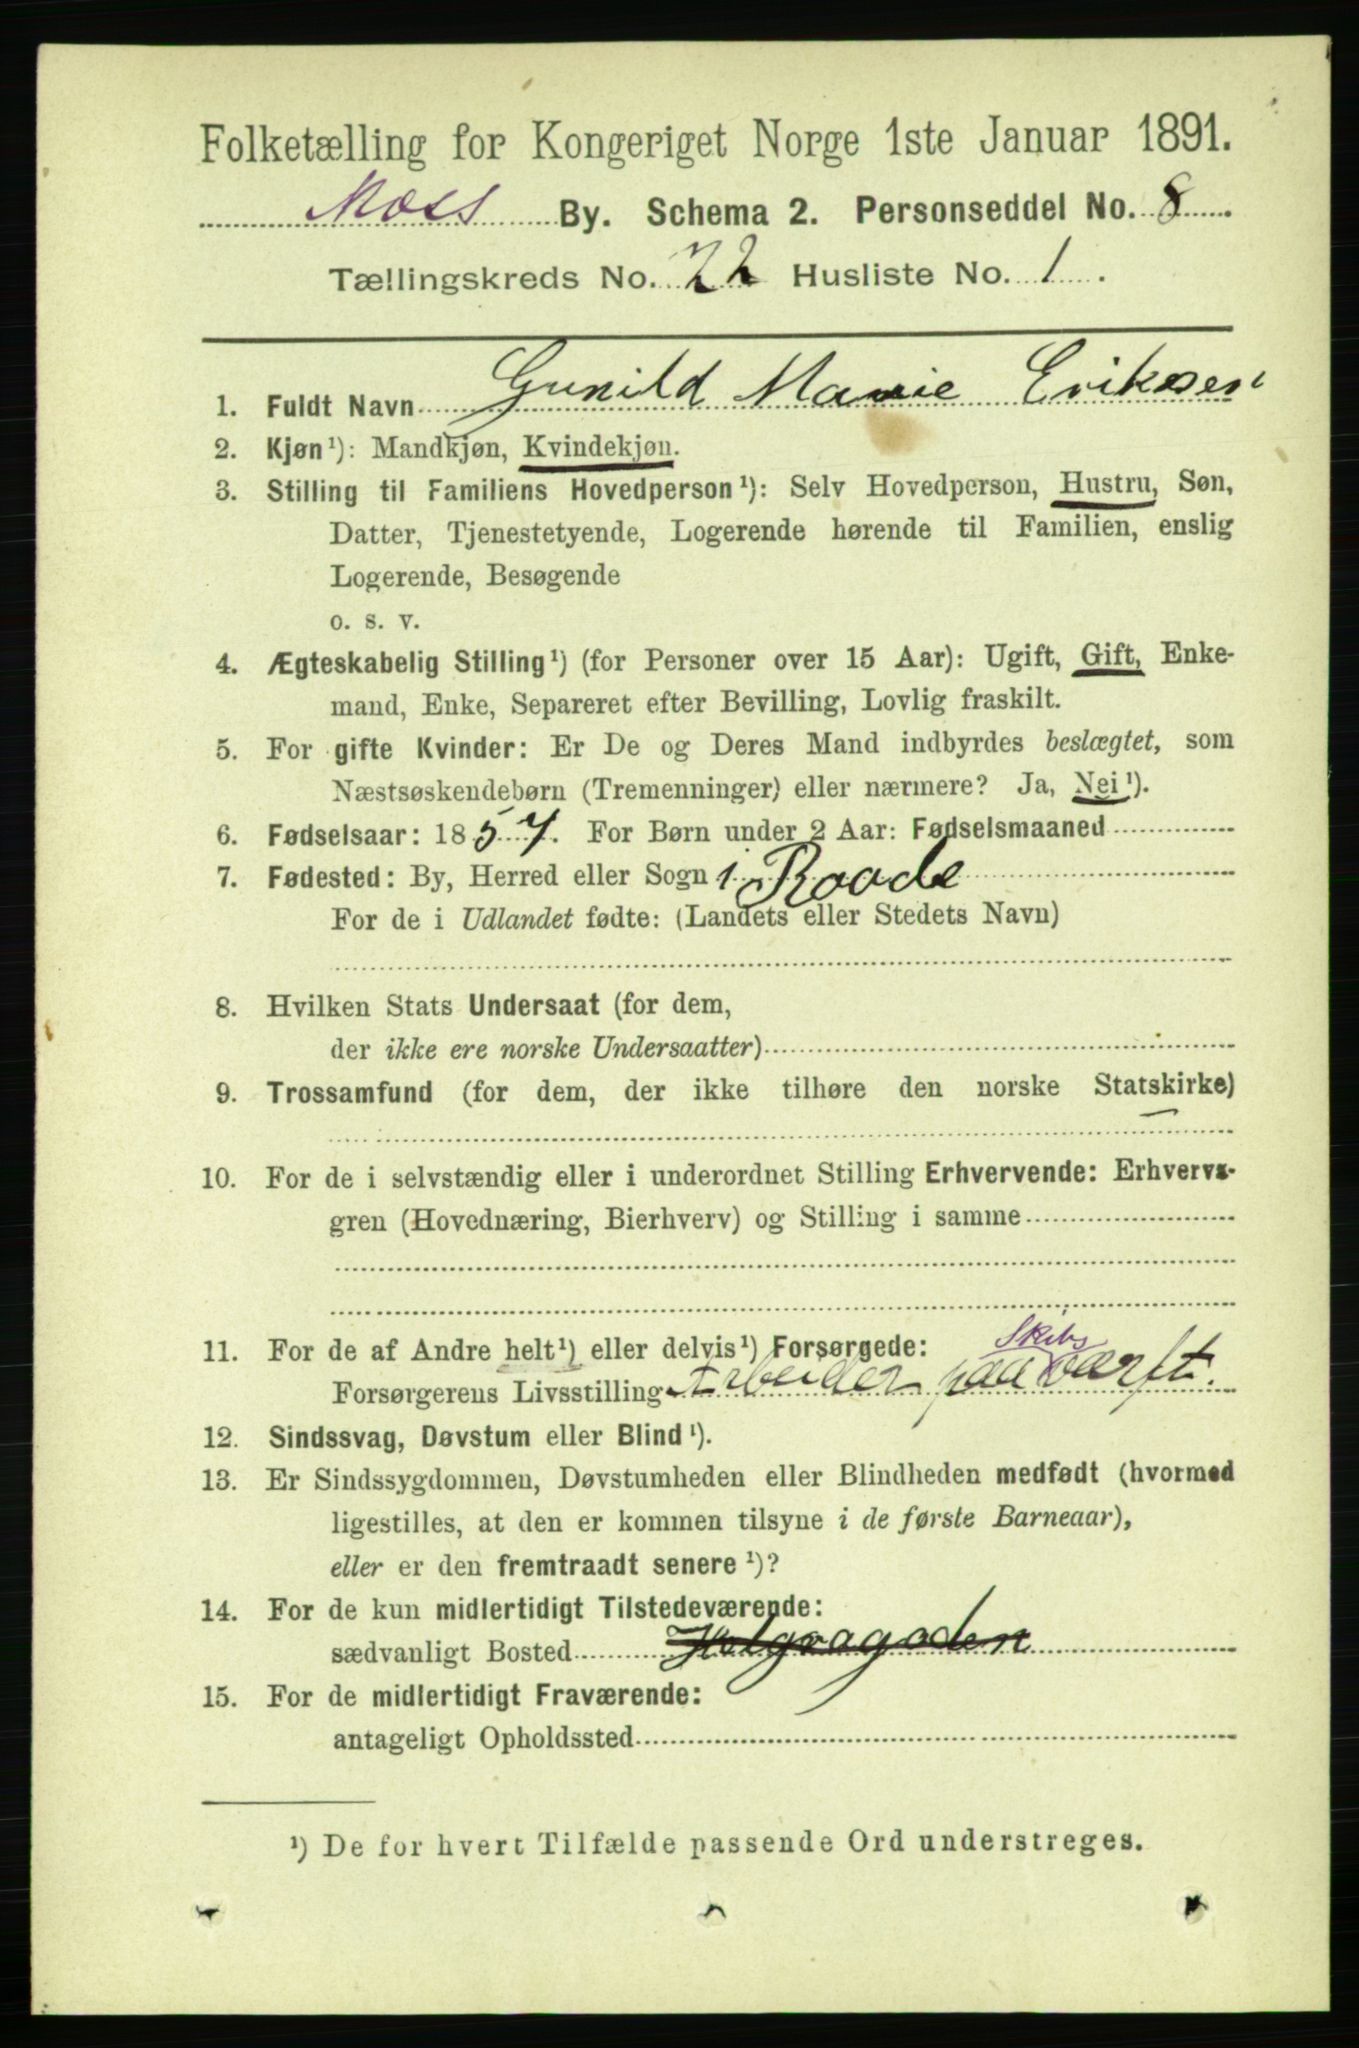 Folketælling for Kongeriget Norge 1ste Januar 1891.
Moss By. Schema 2. Personseddel No. 8.
Tællingskreds No. 22 Husliste No. 1.
1. Fuldt Navn Gunild Marie Eriksen
2. Kjøn¹): Mandkjøn, Kvindekjøn.
3. Stilling til Familiens Hovedperson¹): Selv Hovedperson, Hustru, Søn,
Datter, Tjenestetyende, Logerende hørende til Familien, enslig
Logerende, Besøgende
o. s. v.
4. Ægteskabelig Stilling¹) (for Personer over 15 Aar): Ugift, Gift, Enke-
mand, Enke, Separeret efter Bevilling, Lovlig fraskilt.
5. For gifte Kvinder: Er De og Deres Mand indbyrdes beslægtet, som
Næstsøskendebørn (Tremenninger) eller nærmere? Ja, Nei¹).
6. Fødselsaar: 1857. For Børn under 2 Aar: Fødselsmaaned
7. Fødested: By, Herred eller Sogn i Raade
For de i Udlandet fødte: (Landets eller Stedets Navn)
8. Hvilken Stats Undersaat (for dem,
der ikke ere norske Undersaatter)
9. Trossamfund (for dem, der ikke tilhøre den norske Statskirke)
—
10. For de i selvstændig eller i underordnet Stilling Erhvervende: Erhvervs-
gren (Hovednæring, Bierhverv) og Stilling i samme
11. For de af Andre helt¹) eller delvis¹) Forsørgede:
Skibs
Forsørgerens Livsstilling Arbeider paa værft.
12. Sindssvag, Døvstum eller Blind¹).
13. Er Sindssygdommen, Døvstumheden eller Blindheden medfødt (hvormed
ligestilles, at den er kommen tilsyne i de første Barneaar),
eller er den fremtraadt senere¹)?
14. For de kun midlertidigt Tilstedeværende:
sædvanligt Bosted
15. For de midlertidigt Fraværende:
antageligt Opholdssted
¹) De for hvert Tilfælde passende Ord understreges.